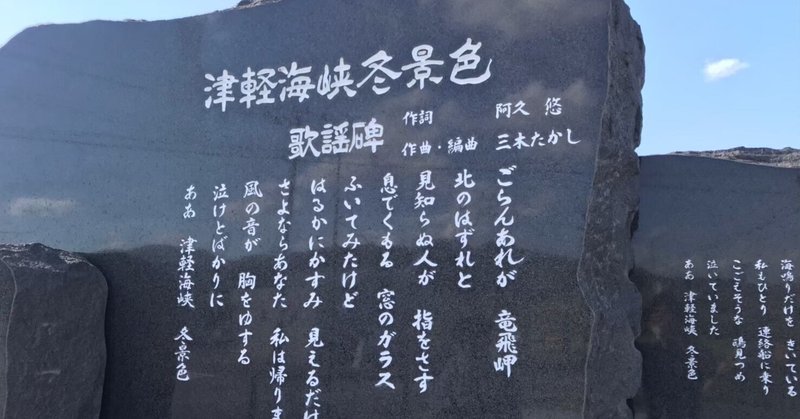 津軽海峡冬景色
歌謡碑
作詞 阿久 悠
作曲・編曲 三木たかし
ごらんあれが 竜飛岬
北のはずれと
見知らぬ人が 指をさす
息でくもる 窓のガラス
ふいてみたけど
はるかにかすみ 見えるだけ
さよならあなた 私は帰りま
風の音が 胸をゆする
泣けとばかりに
ああ 津軽海峡 冬景色
海鳴りだけを きいている
私もひとり 連絡船に乗り
こごえそうな 鴎見つめ
泣いていました
ああ 津軽海峡 冬景色